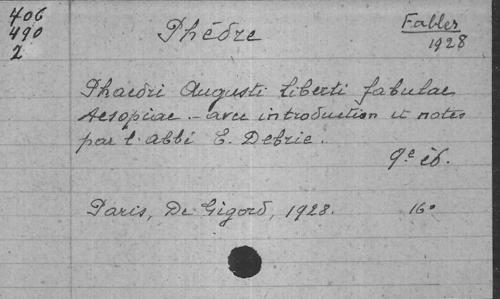 406
490
2
Phédre
Fables
1928
Phaedri Augusti liberti fabulae
Aesopiae - avec introduction et notes
par l'abbé E. Debrie.
9e éd.
Paris, De Gigord, 1928. 16°